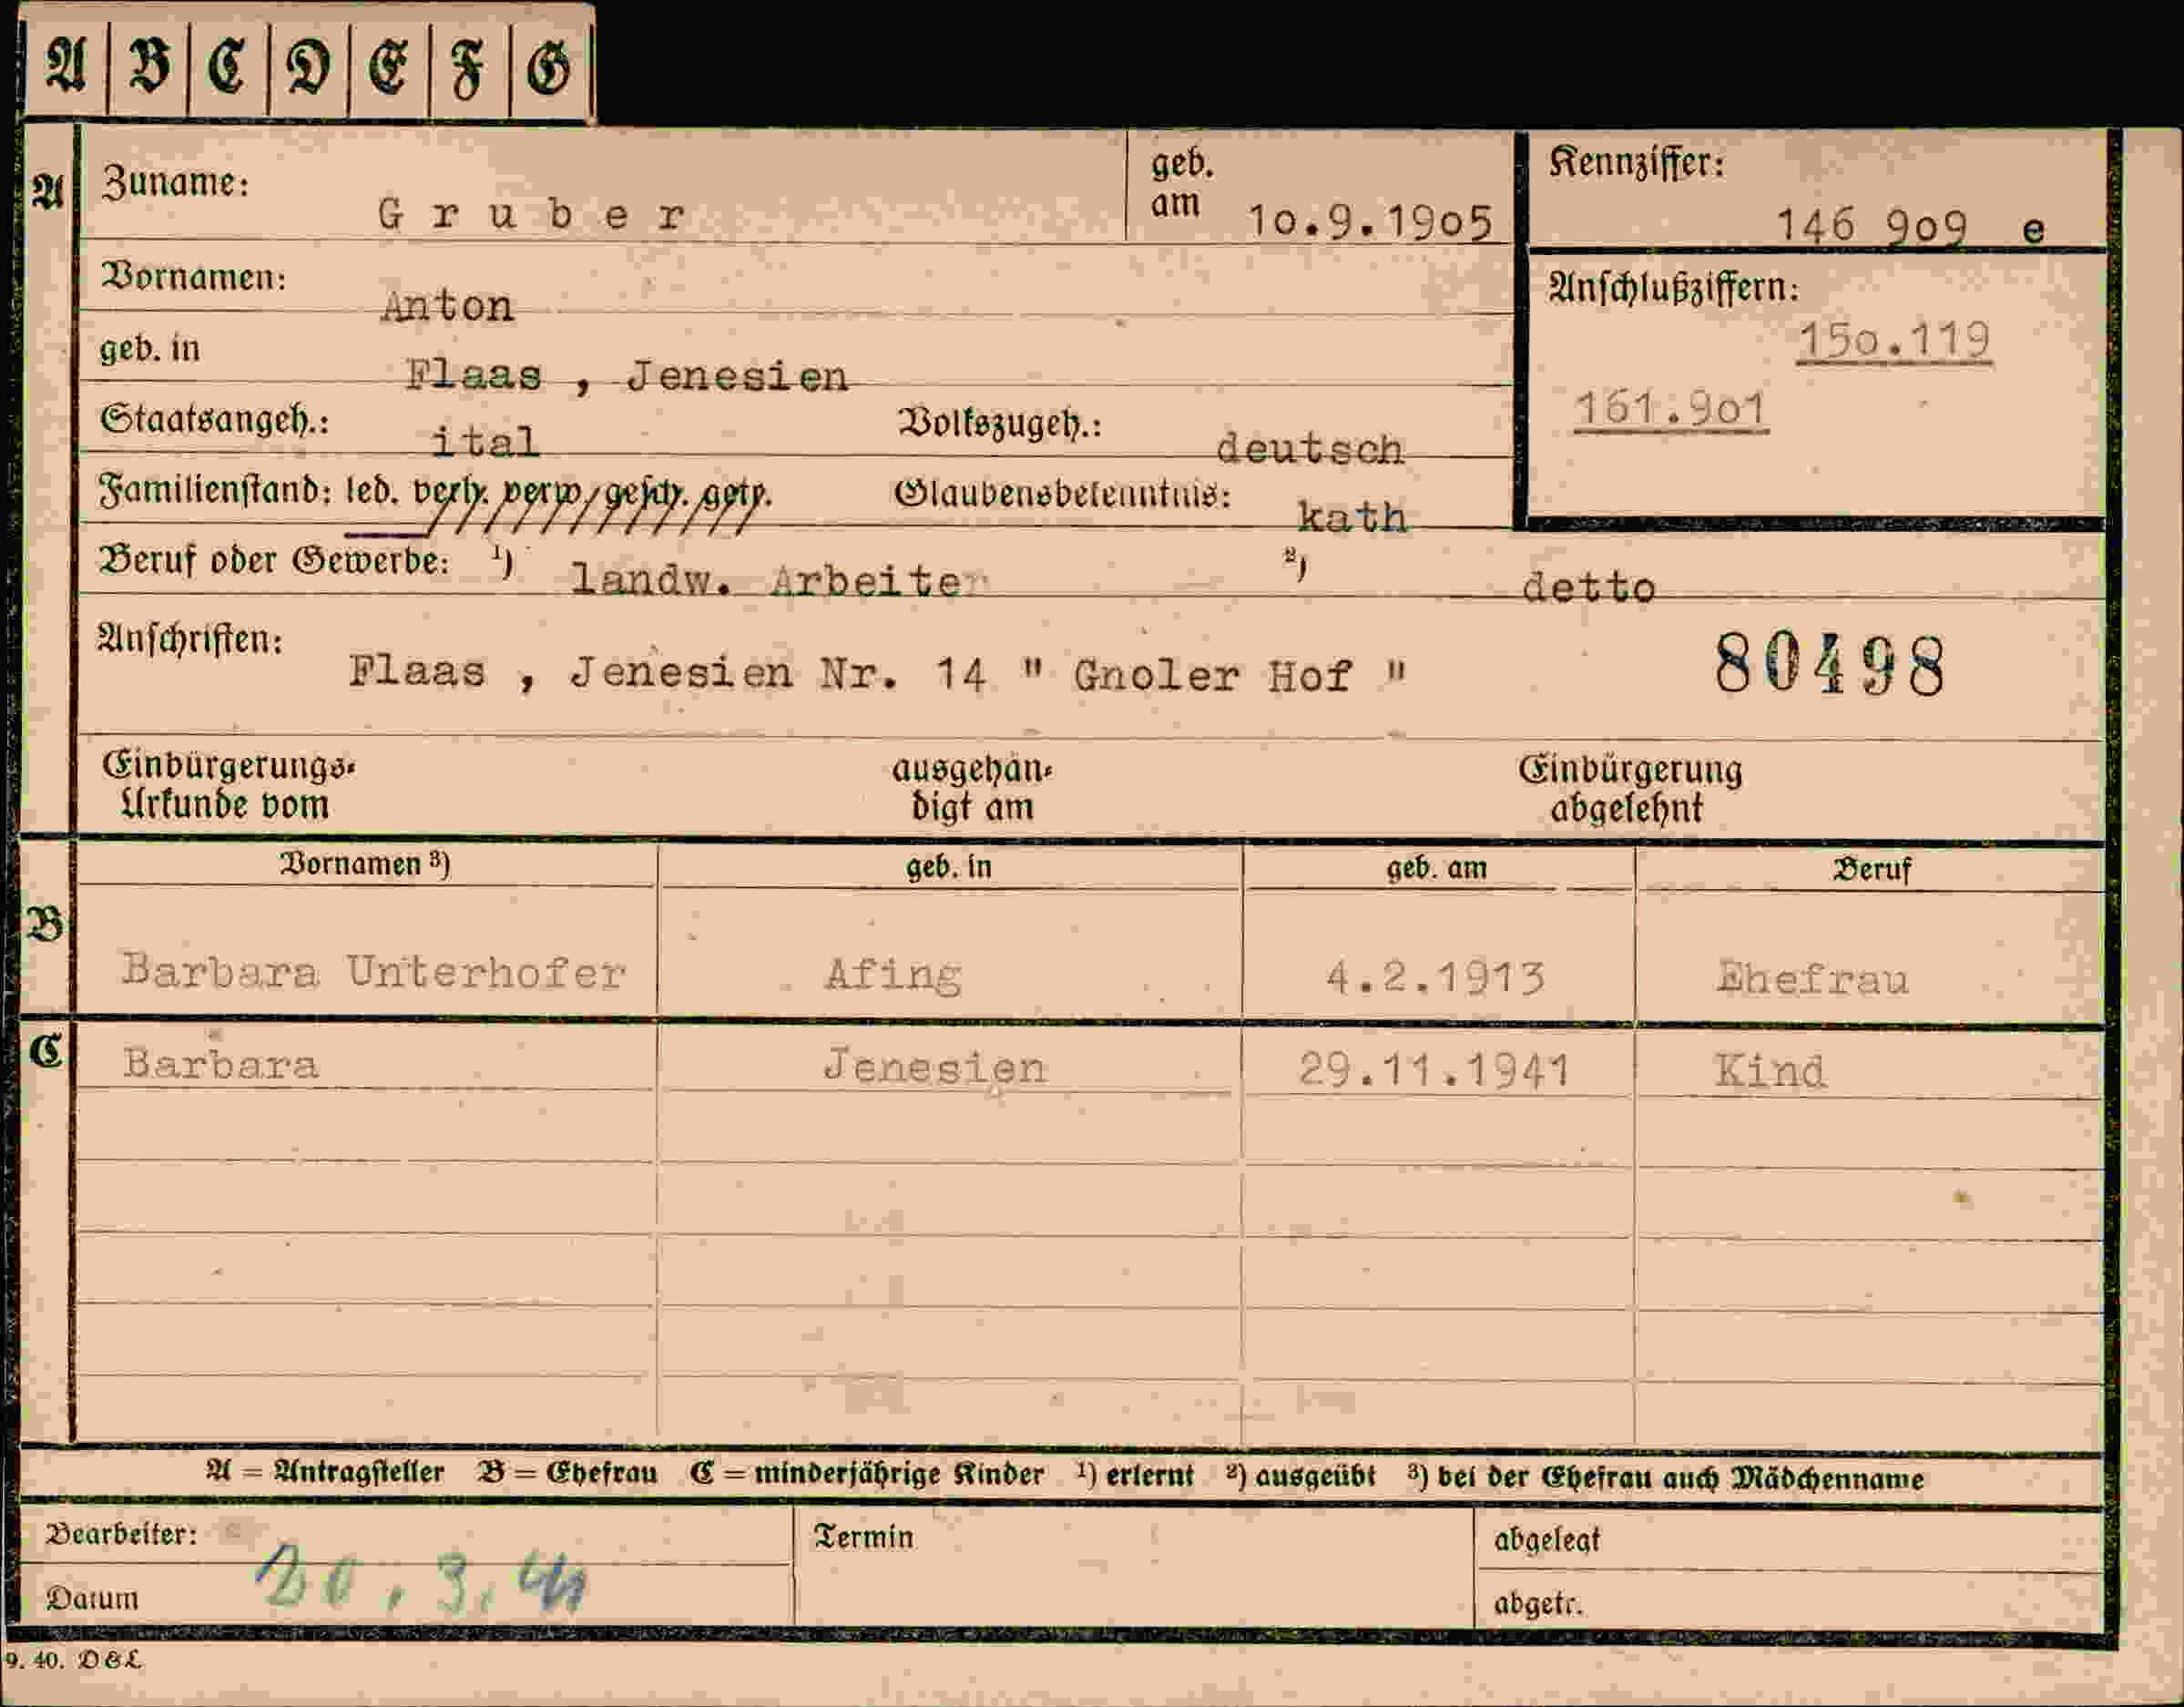 A B C D E F G
A Zuname: Gruber geb. am 10.9.1905 Kennziffer: 146 909 e
Vornamen: Anton Anschlußziffern: 150.119
geb. in Flaas , Jenesien 161.901
Staatsangeh.: ital Volkszugeh.: deutsch
Familienstand: led. verh. verw. gesch. getr. Glaubensbekenntnis: kath
Beruf oder Gewerbe: ¹) landw. Arbeiter ²) detto
Anschriften: Flaas , Jenesien Nr. 14 " Gnoler Hof " 80498
Einbürgerungs- ausgehän- Einbürgerung
Urkunde vom digt am abgelehnt
Vornamen ³) geb. in geb. am Beruf
B Barbara Unterhofer Afing 4.2.1913 Ehefrau
C Barbara Jenesien 29.11.1941 Kind
A = Antragsteller B = Ehefrau C = minderjährige Kinder ¹) erlernt ²) ausgeübt ³) bei der Ehefrau auch Mädchenname
Bearbeiter: Termin abgelegt
Datum 20.3.41 abgetr.
9. 40. D & L